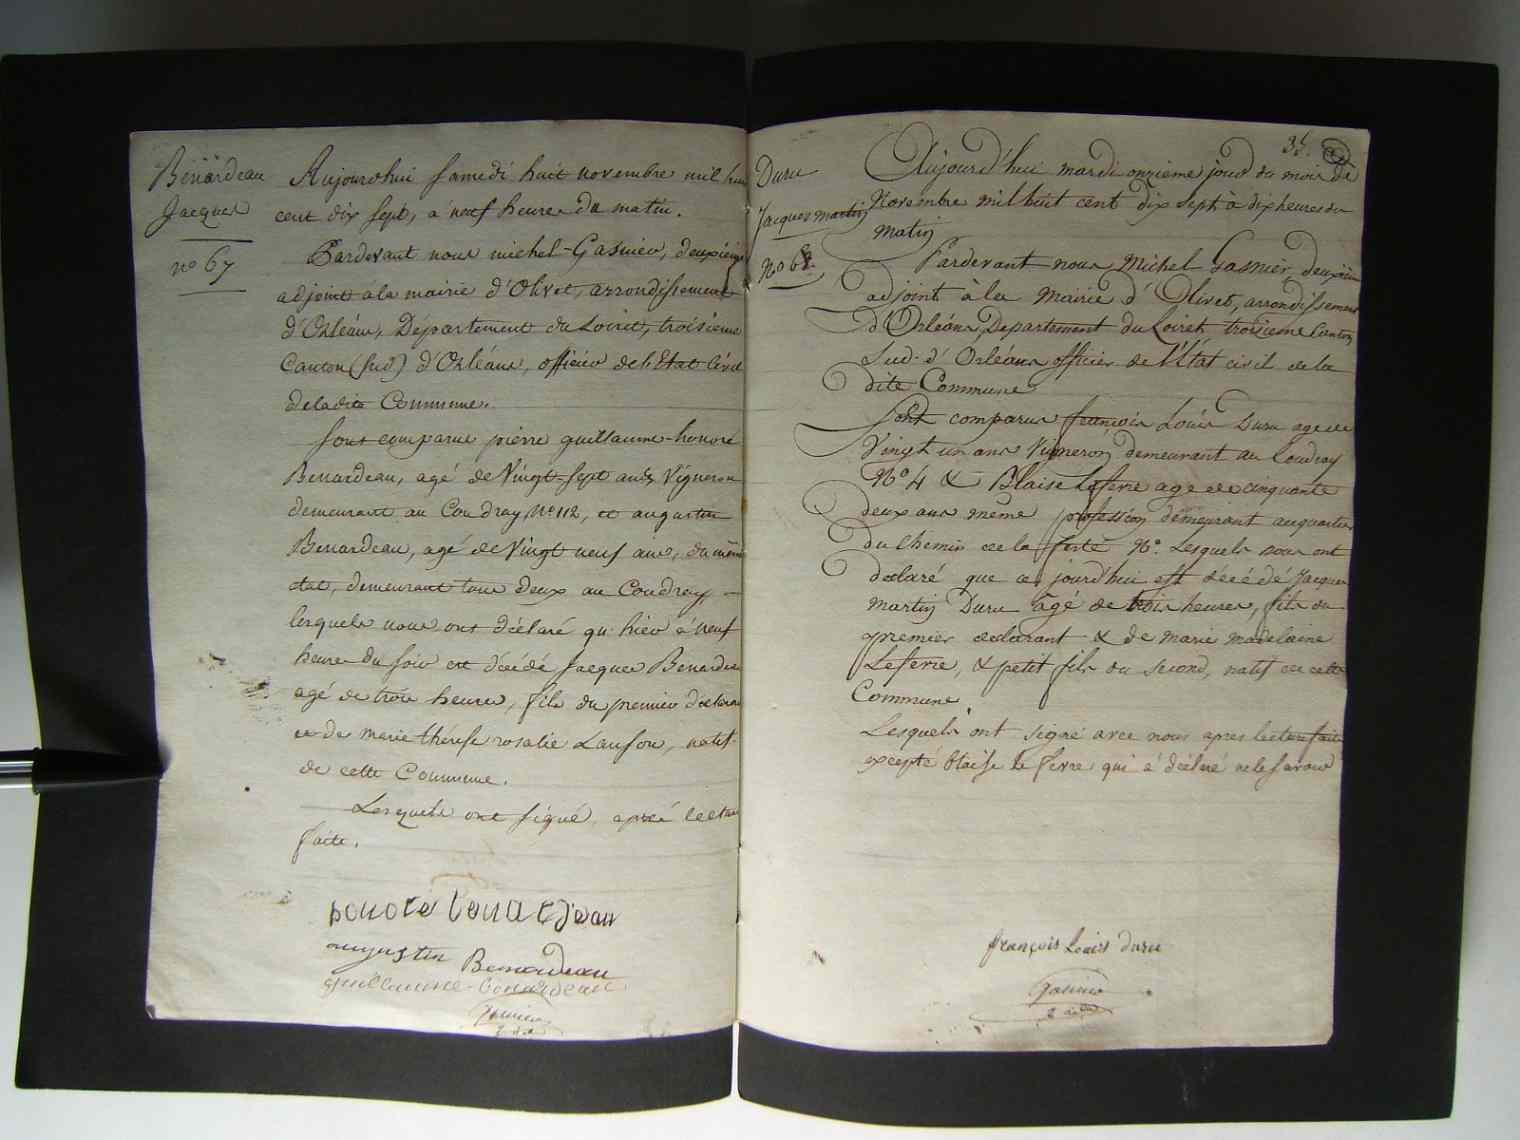 Benardeau
Jacques
no 67
Aujourdhui Samedi huit novembre mil huit
cent dix sept, a neuf heures du matin.
Pardevant nous michel-Gasnier, deuxième
adjoint à la mairie d'Olivet, arrondissement
d'Orléans, Département du Loiret, troisieme
Canton (sud) d'Orléans, officier de l'Etat Civil
de ladite Commune.
Sont comparus pierre guillaume-honoré
Benardeau, agé de Vingt-sept ans, Vigneron
demeurant au Coudray, No. 112, et augustin
Benardeau, agé de Vingt neuf ans, du même
état, demeurant tous deux au Coudray,
lesquels nous ont déclaré qu'hier à neuf
heures du soir est décédé Jacques Benardeau
agé de trois heures, fils du premier déclarant
et de marie thérese rosalie Lanson, natif
de cette Commune.
Lesquels ont signé après lecture
faite.
honoré benardeau
augustin Benardeau
guillaume-benardeau
Gasnier
35.
Duru
Jacques martin
No 68.
Aujourd'hui mardi onzieme jour du mois de
Novembre mil huit cent dix sept à dix heures du
matin
Pardevant nous Michel Gasnier, deuxième
adjoint à la Mairie d'Olivet, arrondissement
d'Orléans, Departement du Loiret troisieme Canton
Sud d'Orléans officier de l'État civil de la
dite Commune
Sont comparus françois Louis Duru age de
Vingt un ans Vigneron demeurant au Coudray
No 4 & Blaise Lefevre age de cinquante
deux ans même profession demeurant au quartier
du Chemin de la ferté No. Lesquels nous ont
declaré que ce jourd'hui est décédé Jacques
Martin Duru âgé de trois heures, fils du
premier declarant & de marie madelaine
Lefevre, & petit fils du Second, natif de cette
Commune.
Lesquels ont signé avec nous apres lecture faite
excepté blaise le fevre qui a déclaré ne le savoir
françois Louis duru
Gasnier